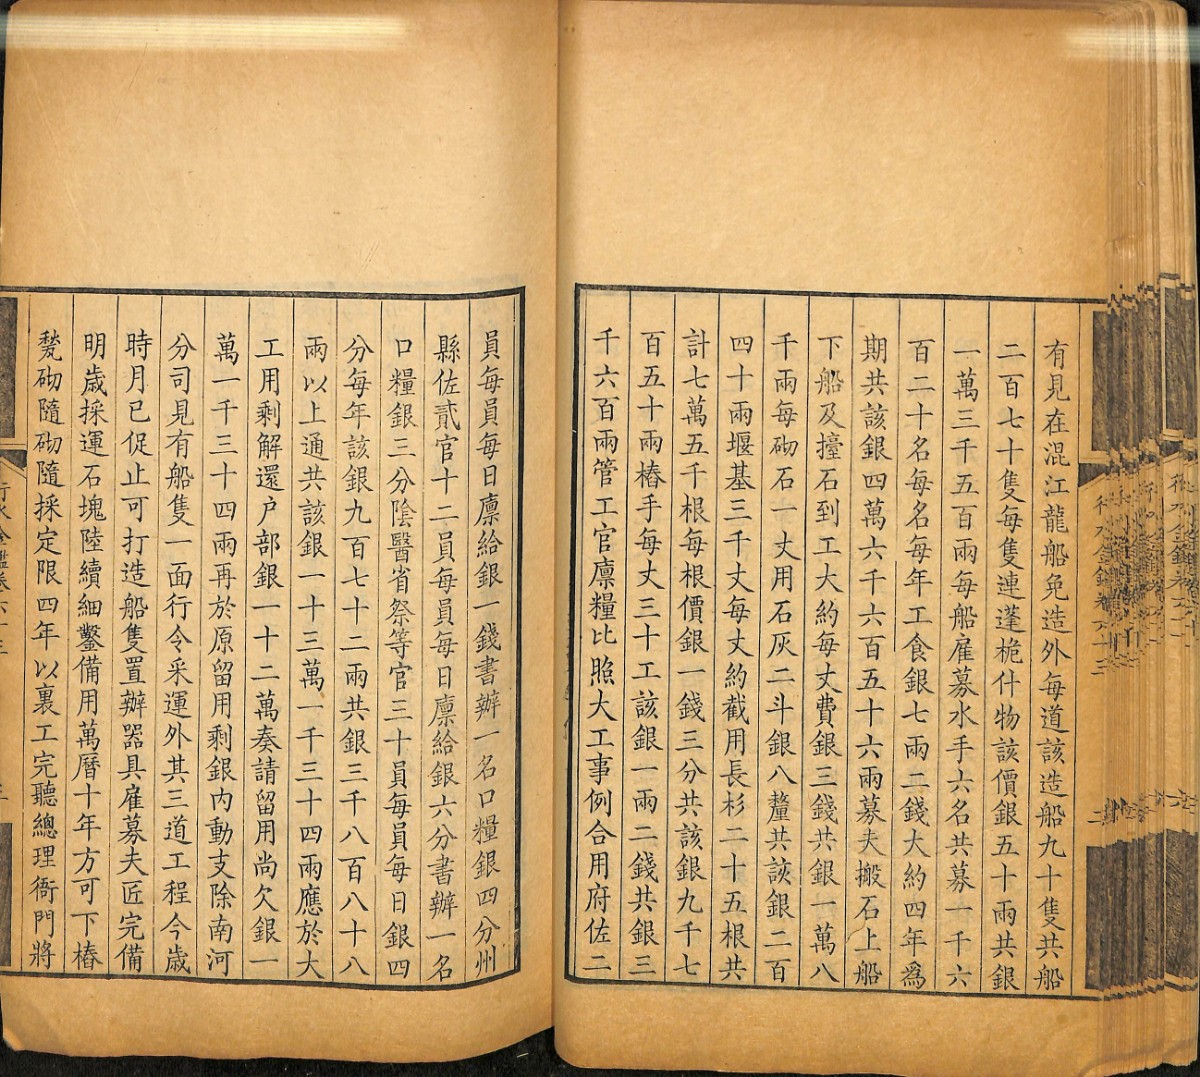 有見在混江龍船免造外每道該造船九十隻共船
二百七十隻每隻連蓬桅什物該價銀五十兩共銀
一萬三千五百兩每船雇募水手六名共募一千六
百二十名每名每年工食銀七兩二錢大約四年為
期共該銀四萬六千六百五十六兩募夫搬石上船
下船及擡石到工大約每丈費銀三錢共銀一萬八
千兩每砌石一丈用石灰二斗銀八釐共該銀二百
四十兩堰基三千丈每丈約截用長杉二十五根共
計七萬五千根每根價銀一錢三分共該銀九千七
百五十兩樁手每丈三十工該銀一兩二錢共銀三
千六百兩管工官廪糧比照大工事例合用府佐二
員每員每日廪給銀一錢書辦一名口糧銀四分州
縣佐貳官十二員每員每日廪給銀六分書辦一名
口糧銀三分陰醫省祭等官三十員每員每日銀四
分每年該銀九百七十二兩共銀三千八百八十八
兩以上通共該銀一十三萬一千三十四兩應於大
工用剩解還户部銀一十二萬奏請留用尚欠銀一
萬一千三十四兩再於原留用剩銀內動支除南河
分司見有船隻一面行令采運外其三道工程今歲
時月已促止可打造船隻置辦器具雇募夫匠完備
明歳採運石塊陸續細鑿備用萬曆十年方可下樁
甃砌隨砌隨採定限四年以裏工完聽總理衙門將
行水金鑑卷六十三